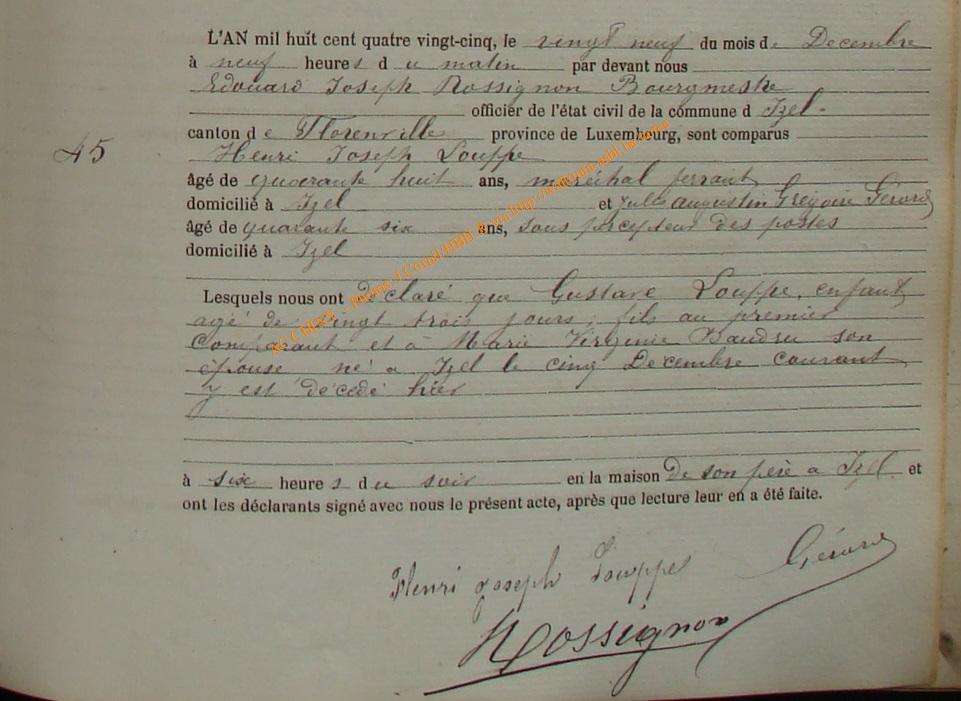 L'AN mil huit cent quatre vingt-cinq, le vingt neuf du mois de Decembre
à neuf heures du matin par devant nous
Edouard Joseph Rossignon Bourgmestre
officier de l'état civil de la commune d Izel-
canton de Florenville province de Luxembourg, sont comparus
45
Henri Joseph Louppe
âgé de quarante huit ans, maréchal ferrant
domicilié à Izel et Jules Augustin Grégoire Gérard
âgé de quarante six ans, sous percepteur des postes
domicilié à Izel
Lesquels nous ont déclaré que Gustave Louppe, enfant
agé de vingt trois jours, fils au premier
Comparant et à Marie Virginie Baudru son
épouse né a Izel le cinq Decembre courant
y est décédé hier
à six heures du soir en la maison de son père a Izel et
ont les déclarants signé avec nous le présent acte, après que lecture leur en a été faite.
Henri joseph Louppe Gérard
Rossignon